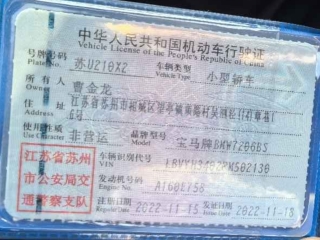 中华人民共和国机动车行驶证
Vehicle License of the People's Republic of China
号牌号码 苏U210X2 车辆类型 小型轿车
Plate No. Vehicle Type
所有人 曹金龙
Owner
住址 江苏省苏州市相城区望亭镇
6号
使用性质 非营运 品牌型号 宝马牌
Use Character Model
江苏省苏州
市公安局交
通警察支队
车辆识别代号
VIN
发动机号码
Engine No.
注册日期 2022-11-13 发证日期 2022-11-13
Register Date Issue Date